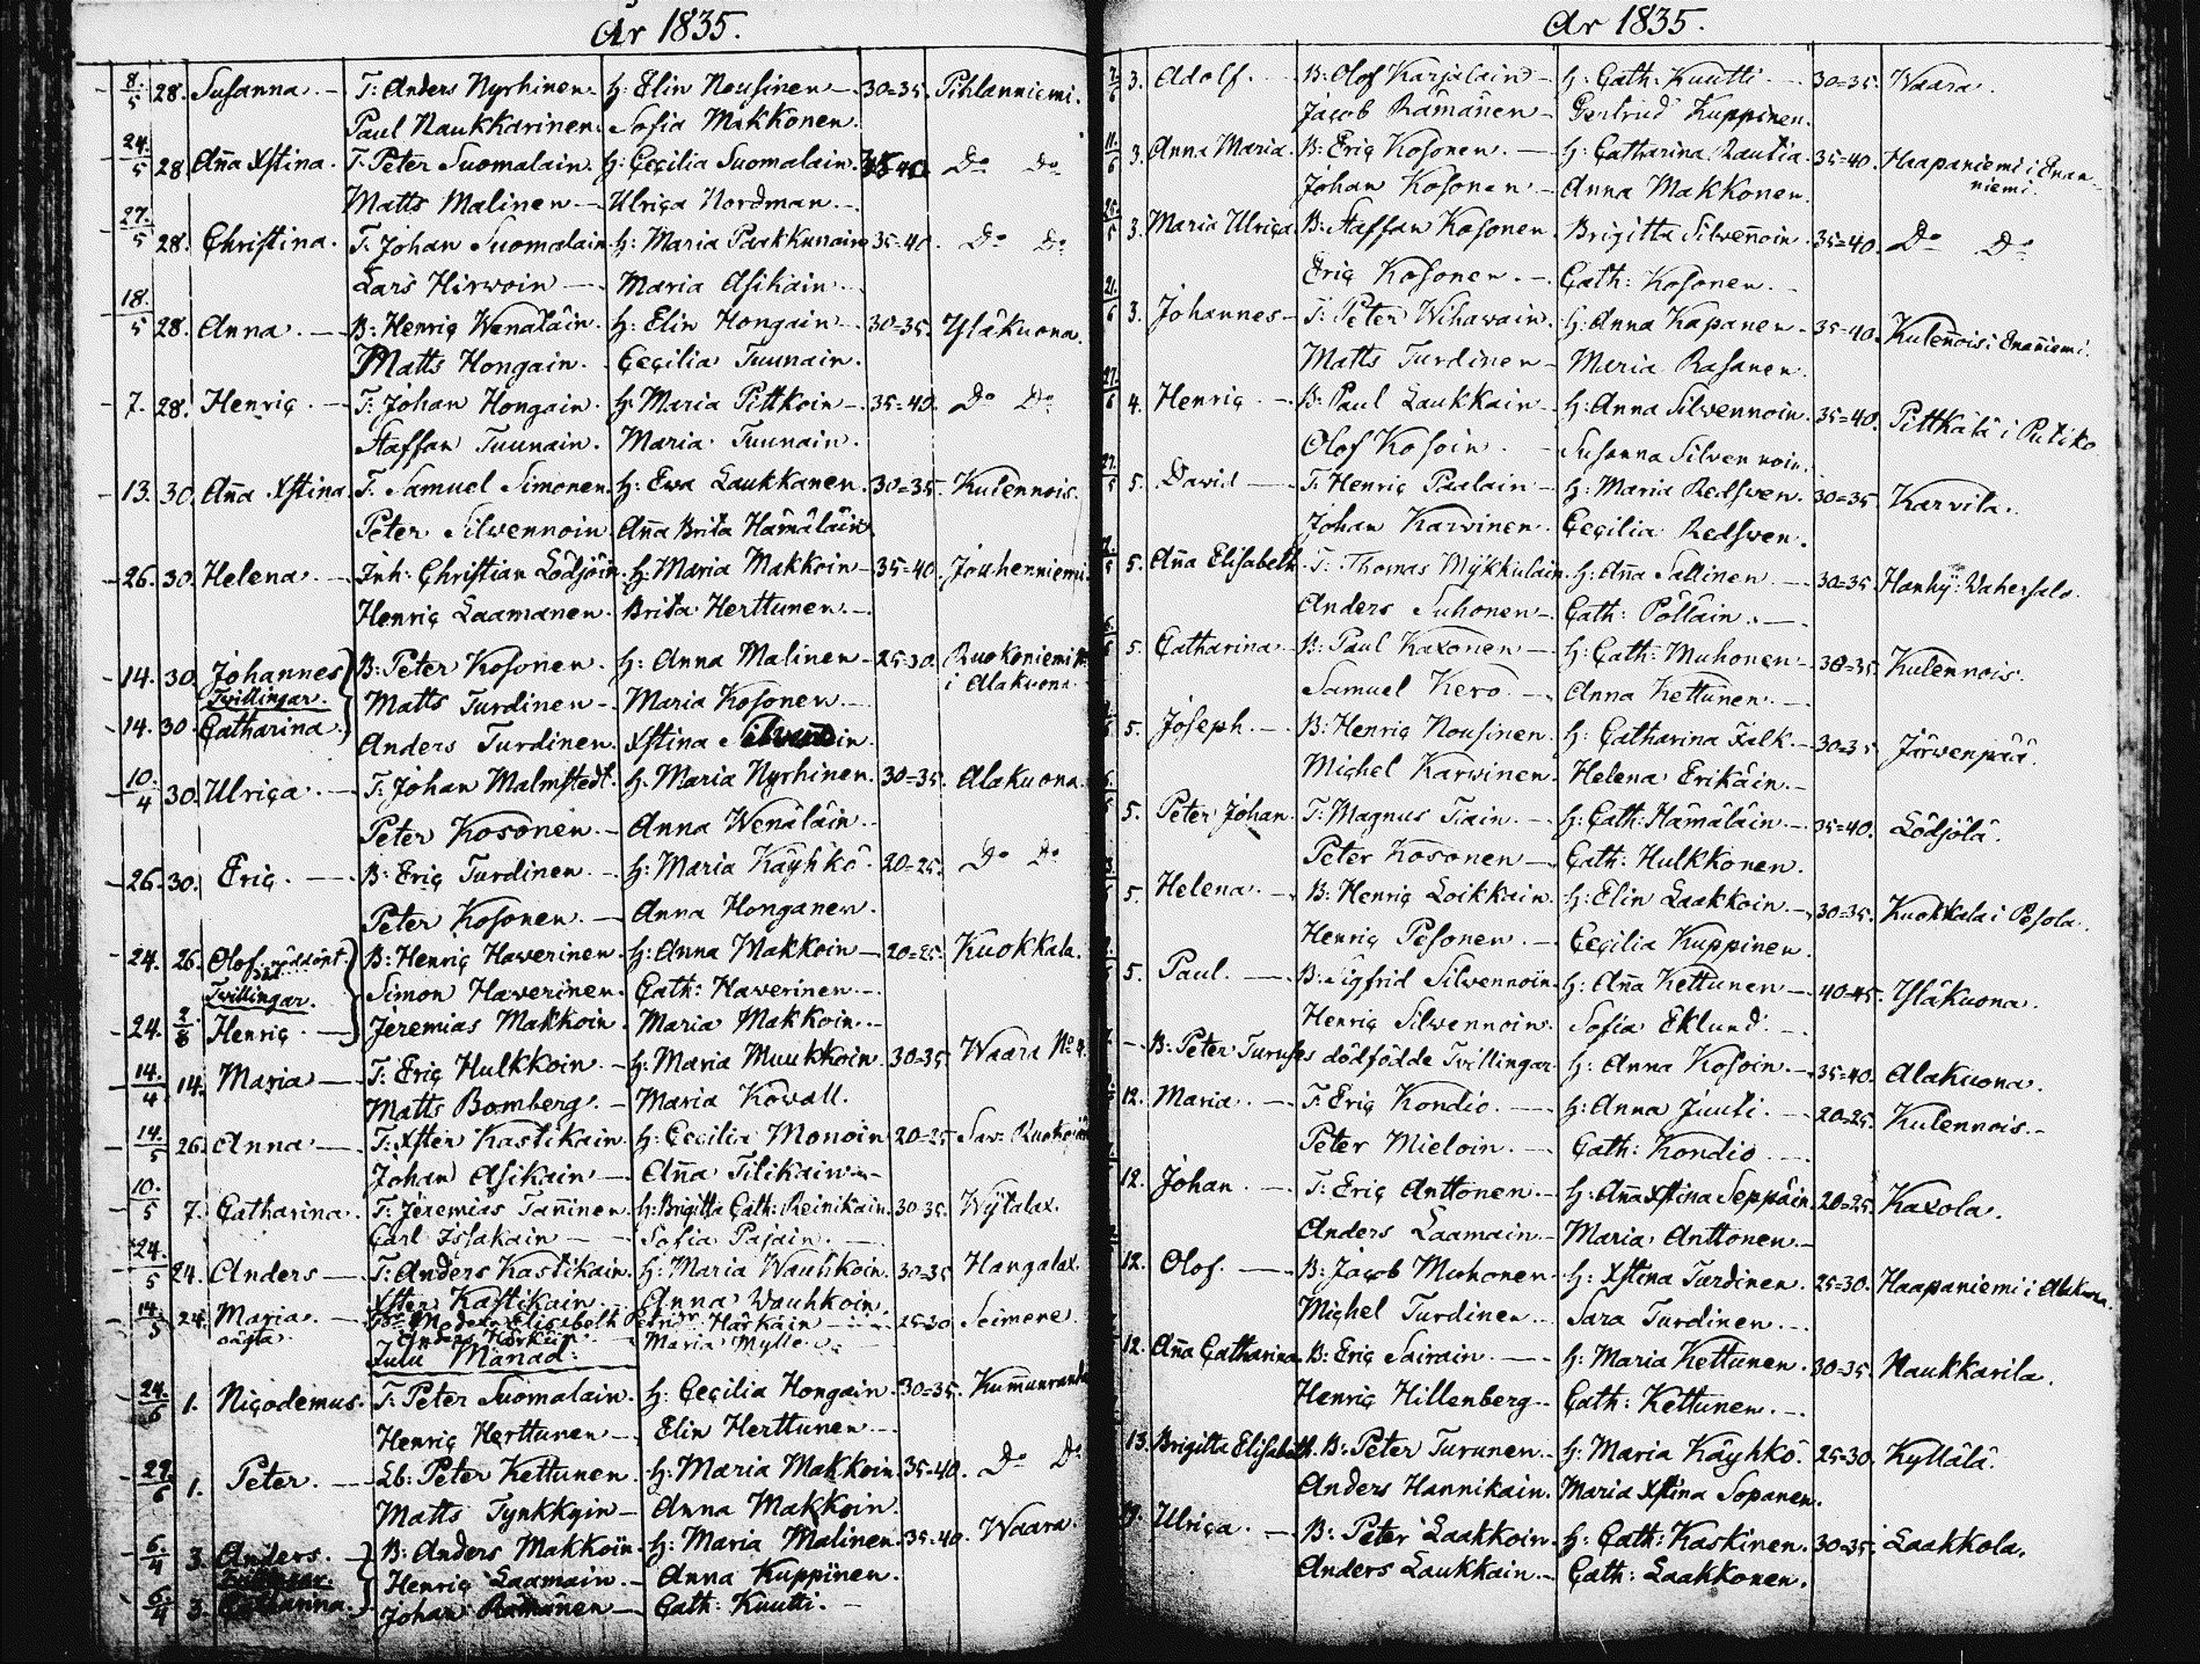 År 1835.
8/5 28. Susanna. T: Anders Nyrhinen. H: Elin Nousinen 30=35. Pihlanniemi.
Paul Naukkarinen. Sofia Makkonen.
24./5 28 Aña Xstina. T: Peter Suomalain. H: Cecilia Suomalain. 35=40. Do Do
Matts Malinen Ulrica Nordman.
27./5 28. Christina. T: Johan Suomalain. H: Maria Paakkunain 35=40. Do Do
Lars Hirwoin Maria Asikain.
18./5 28. Anna. B: Henric Wenäläin. H: Elin Hongain 30=35. Yläkuona.
Matts Hongain. Cecilia Tuunain.
7. 28. Henric. T: Johan Hongain. H: Maria Pittkoin 35=40. Do Do
Staffan Tuunain. Maria Tuunain.
13. 30. Aña Xstina. T. Samuel Simonen. H: Ewa Laukkanen. 30=35. Kulennois.
Peter Silvennoin. Aña Brita Hämäläin.
26. 30. Helena. Inh: Christian Lödjöin. H: Maria Makkoin 35=40. Jouhenniemi
Henric Laamanen. Brita Herttunen.
14. 30. Johannes B: Peter Kosonen. H: Anna Malinen 25=30. Ruokoniemi
Tvillingar. Matts Turdinen Maria Kosonen. i Alakuona.
14. 30. Catharina. Anders Turdinen. Xstina
10./4 30. Ulrica. T: Johan Malmstedt. H: Maria Nyrhinen. 30=35. Alakuona.
Peter Kosonen. Anna Wenäläin.
26. 30. Eric. B: Eric Turdinen. H: Maria Käyhkö. 20=25. Do Do
Peter Kosonen. Anna Honganen.
24. 26. Olof. nöddöpt B: Henric Haverinen. H: Anna Makkoin 20=25. Kuokkala.
Tvillingar. Simon Haverinen. Cath: Haverinen.
24. 2/8 Henric. Jeremias Makkoin. Maria Makkoin.
14./4 14. Maria T: Eric Hulkkoin. H: Maria Muukkoin. 30=35. Waara No 4.
Matts Bomberg. Maria Kowall.
14./5 26. Anna T: Xster Kastikain. H: Cecilia Monoin 20=25 Sav:
Johan Asikain Aña Tilikain
10./5 7. Catharina. T: Jeremias Tañinen. H: Brigitta Cath: Reinikain. 30=35. Wijtalax.
Carl Issakain Sofia Pajain.
24./5 24. Anders T: Anders Kastikain. H: Maria Wauhkoin. 30=35 Hangalax.
Xster Kastikain. Anna Wauhkoin.
14./5 24. Maria. Modern Elisabeth Härkäin 25=30 Seimene.
oägta. Anders Härkäin Maria Mylle
Julii Månad:
24./6 1. Nicodemus. T: Peter Suomalain. H: Cecilia Hongain. 30=35. Kum̃unranda
Henric Herttunen Elin Herttunen
29./6 1. Peter. Lb: Peter Kettunen. H: Maria Makkoin. 35=40. Do Do
Matts Tynkkyin Anna Makkoin.
6./4 3. Anders. B: Anders Makkoin. H: Maria Malinen. 35=40. Waara.
Tvillingar. Henric Laamain. Anna Kuppinen.
6./4 3. Johan Rämänen Cath: Kuutti.
År 1835.
7/6 3. Adolf. B: Olof Karjalain H: Cath: Kuutti 30=35. Waara.
Jacob Rämänen Gertrud Kuppinen.
11./6 3. Anna Maria. B: Eric Kosonen. H: Catharina Rautia. 35=40. Haapaniemi i Enan-
niemi.
Johan Kosonen Anna Makkonen.
25./5 3. Maria Ulrica. B: Staffan Kosonen. Brigitta Silveñoin. 35=40. Do Do
Eric Kosonen. Cath: Kosonen.
21./6 3. Johannes T: Peter Wihavain. H: Anna Kapanen 35=40. Kuleñois i Enañiemi.
Matts Turdinen Maria Rasanen.
27./6 4. Henric B: Paul Laukkain H: Anna Silvennoin. 35=40. Pittkälä i Putiko
Olof Kosoin. Susanna Silvennoin.
5. David T: Henric Paalain H: Maria Redsven. 30=35. Karvila.
Johan Karvinen. Cecilia Redsven.
5. Aña Elisabeth. T: Thomas Mykkulain. H: Aña Sallinen 30=35. Hanhij: Wahersalo.
Anders Suhonen Cath: Pölläin.
5. Catharina B: Paul Kaxonen H: Cath: Muhonen 30=35. Kulennois.
Samuel Kero. Anna Kettunen.
5. Joseph. B: Henric Nousinen. H: Catharina Falk. 30=35 Järvenpää.
Michel Karvinen. Helena Erikäin.
5. Peter Johan. T: Magnus Tiain. H: Cath: Hämäläin. 35=40. Lödjölä.
Peter Kosonen Cath: Hulkkonen.
5. Helena. B: Henric Loikkain. H: Elin Laakkoin. 30=35. Kuokkala i Pesola.
Henric Pesonen. Cecilia Kuppinen.
5. Paul. B: Sigfrid Silvennoin. H: Aña Kettunen 40=45. Yläkuona.
Henric Silvennoin. Sofia Eklund.
B: Peter Turuses dödfödde Tvillingar. H: Anna Kosoin. 35=40. Alakuona.
12. Maria. T: Eric Kondio. H: Anna Juuti. 20=25. Kulennois.
Peter Mieloin. Cath: Kondio
12. Johan. T: Eric Anttonen. H: Aña Xstina Seppäin. 20=25. Kaxola.
Anders Laamain. Maria Anttonen
12. Olof. B: Jacob Muhonen. H: Xstina Turdinen. 25=30. Haapaniemi i Alakuona.
Michel Turdinen. Sara Turdinen.
12. Aña Catharina. B: Eric Sairain. H: Maria Kettunen. 30=35 Naukkarila.
Henric Hillenberg. Cath: Kettunen.
13. Brigitta Elisabeth. B: Peter Turunen. H: Maria Käyhkö. 25=30. Kyllälä.
Anders Hannikain. Maria Xstina Sopanen.
19. Ulrica. B: Peter Laakkoin. H: Cath: Kaskinen. 30=35. Laakkola.
Anders Laukkain. Cath: Laakkonen.